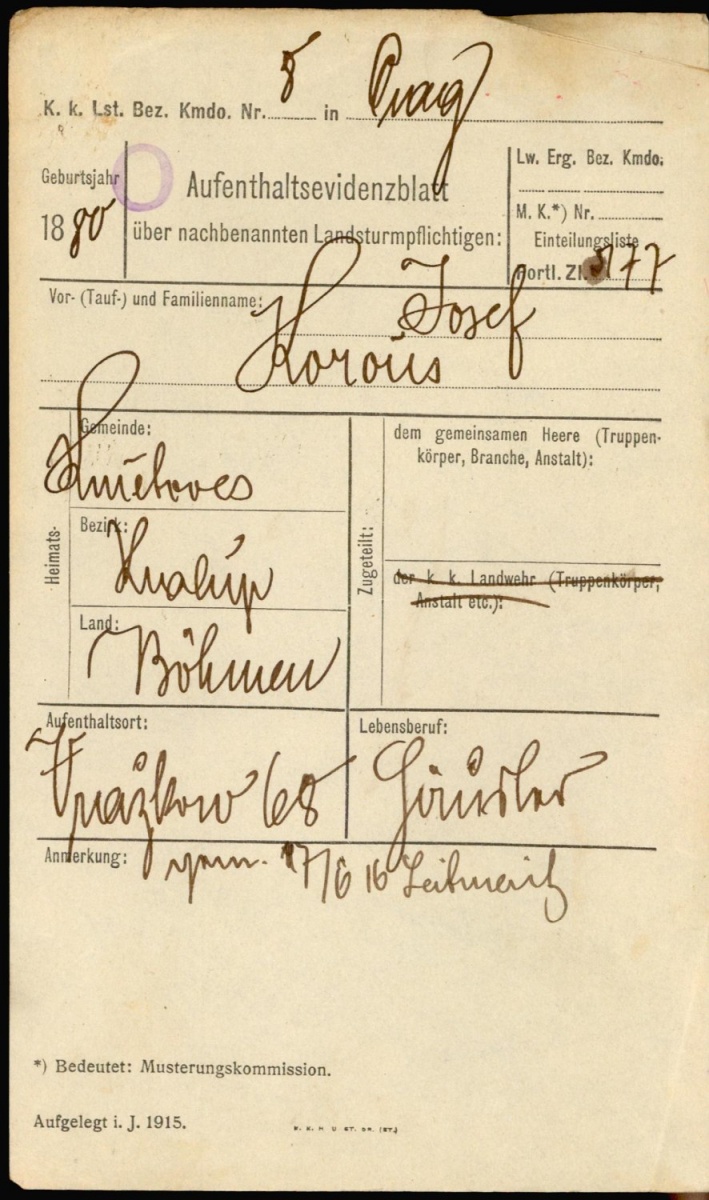 K. k. Lst. Bez. Kmdo. Nr. 8 in Prag
Geburtsjahr
1880
Aufenthaltsevidenzblatt
über nachbenannten Landsturmpflichtigen:
Lw. Erg. Bez. Kmdo.
M. K.*) Nr.
Einteilungsliste
Fortl. Zl. 5177
Vor- (Tauf-) und Familienname:
Josef
Korous
Heimats-
Gemeinde:
Kmětnoves
Bezirk:
Kralup
Land:
Böhmen
Zugeteilt:
dem gemeinsamen Heere (Truppen-
körper, Branche, Anstalt):
der k. k. Landwehr (Truppenkörper,
Anstalt etc.):
Aufenthaltsort:
68
Lebensberuf:
Häusler
Anmerkung:
17/6 16 Leitmeritz
*) Bedeutet: Musterungskommission.
Aufgelegt i. J. 1915.